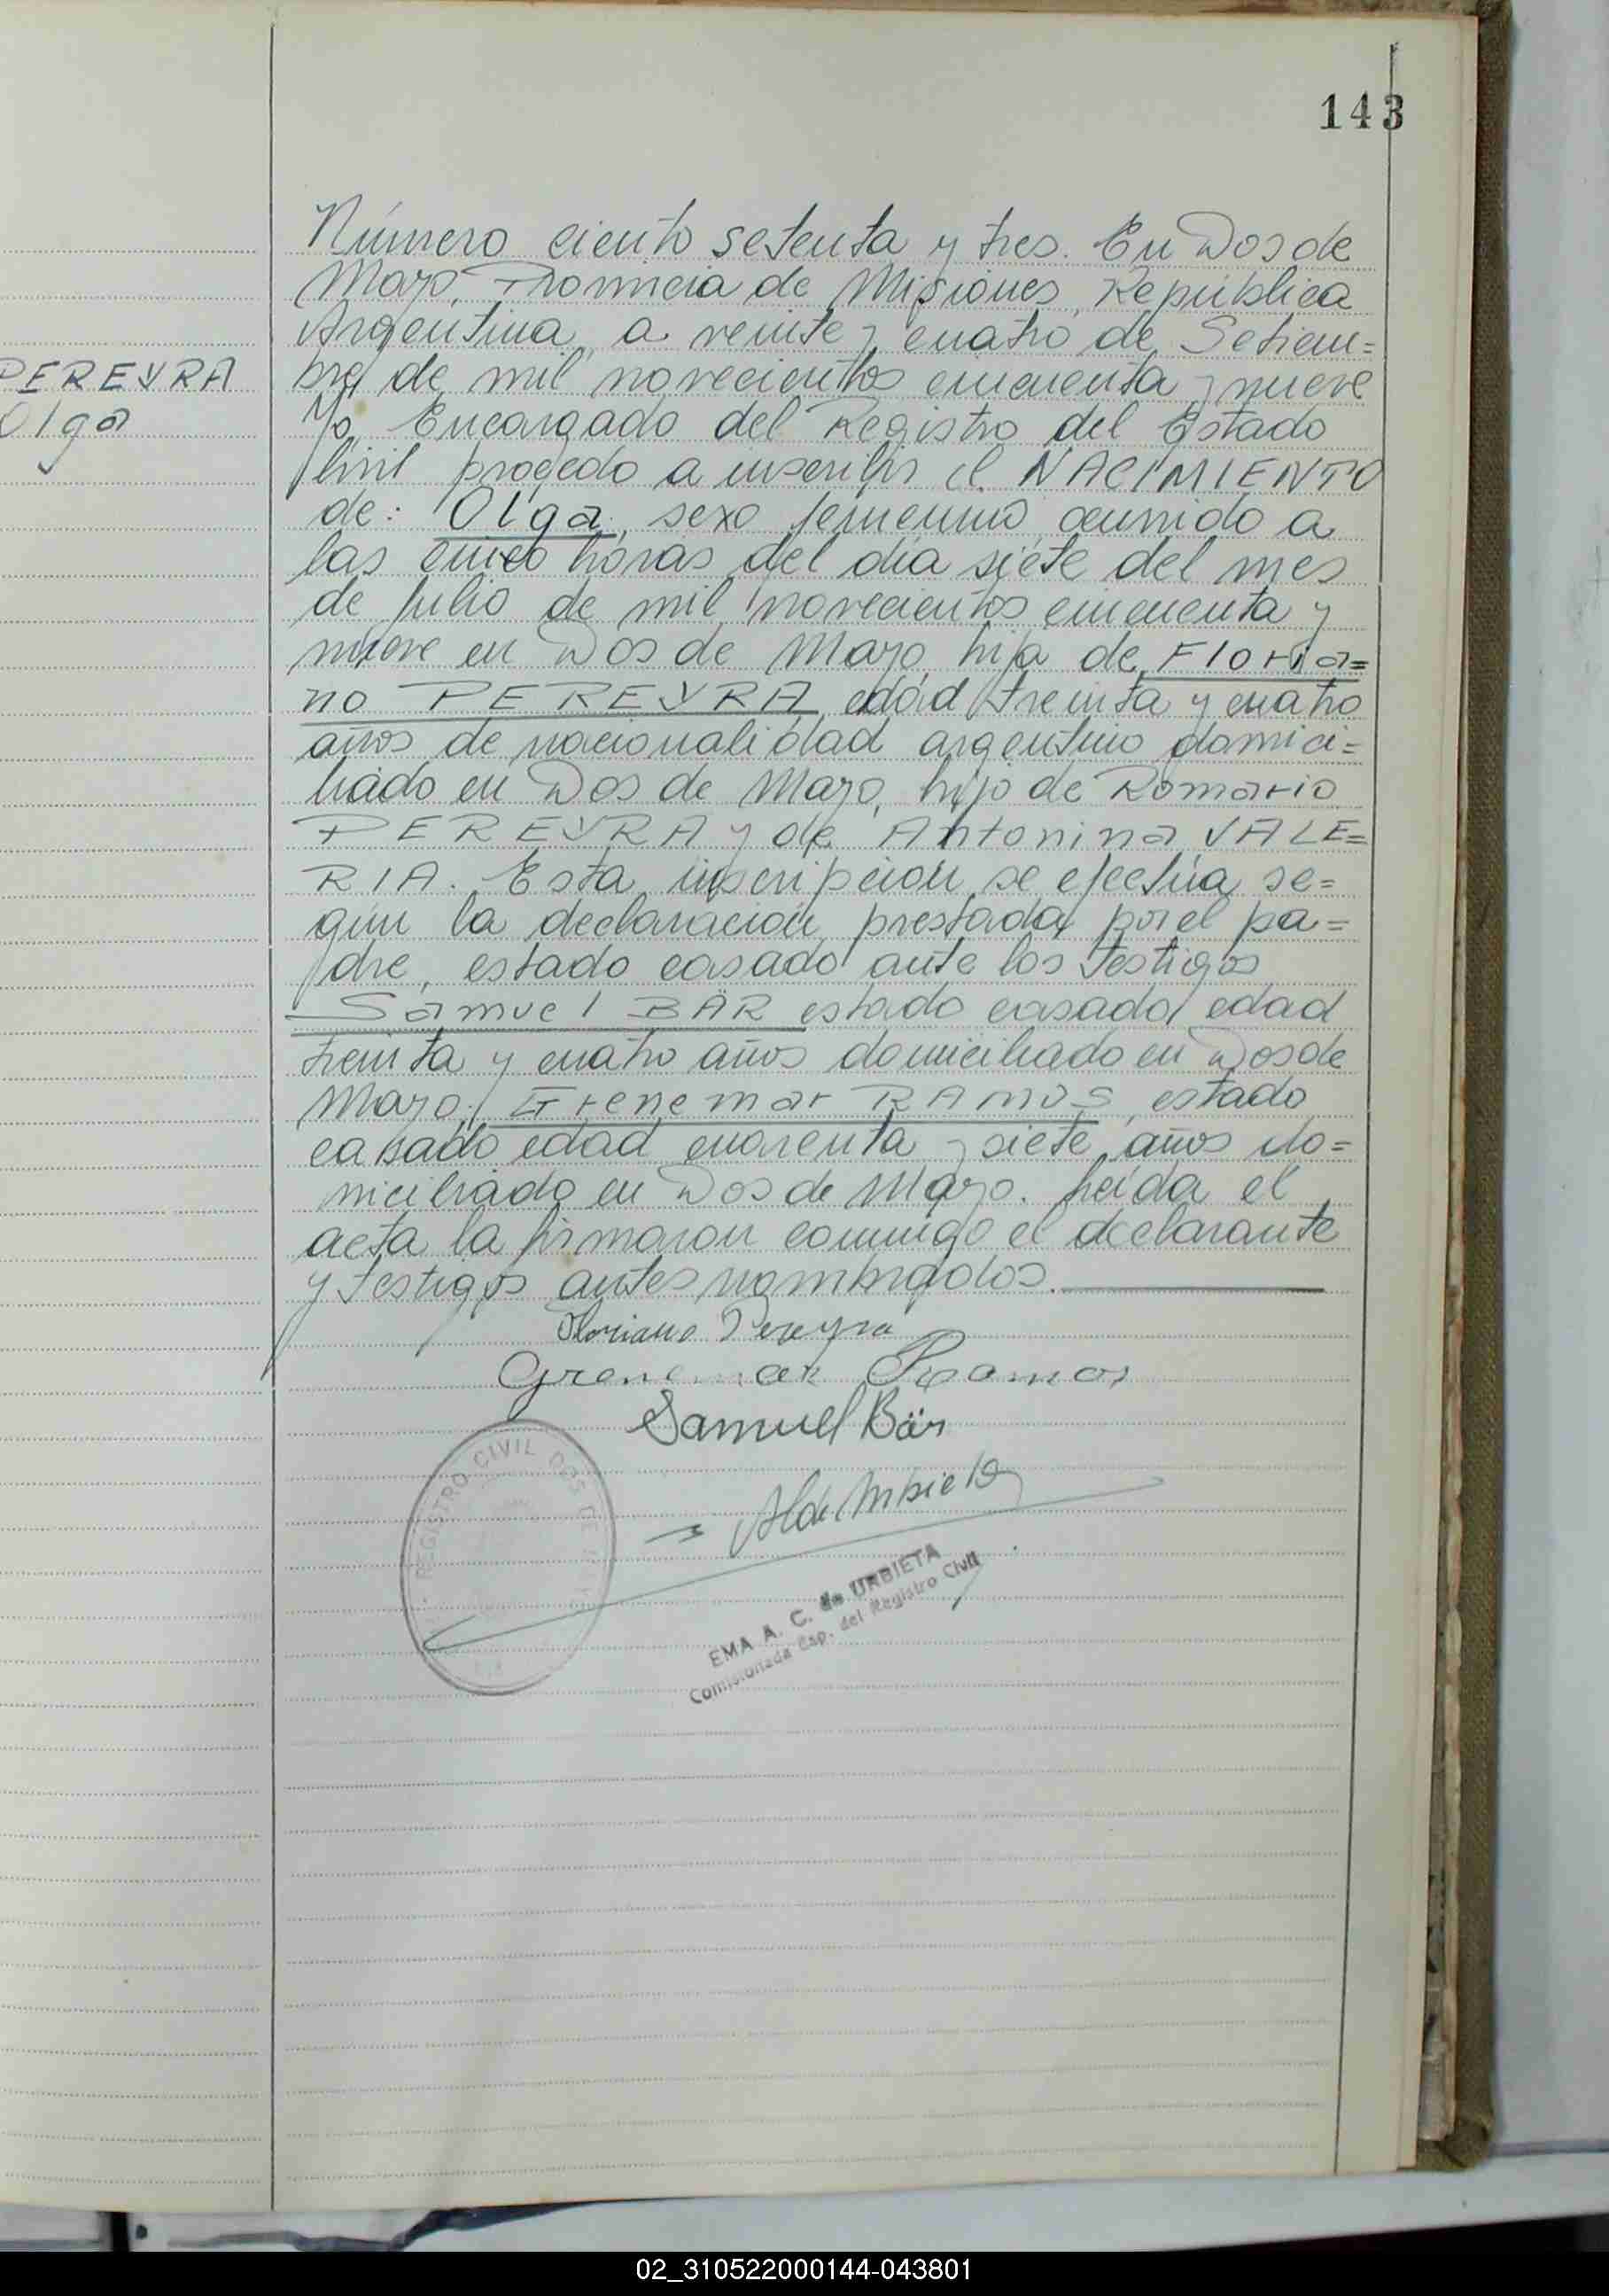 143
Número ciento setenta y tres. En Dos de
Mayo, Provincia de Misiones, República
Argentina, a veinte y cuatro de Setiem=
bre de mil novecientos cincuenta y nueve
PEREYRA
Olga
Yo Encargado del Registro del Estado
Civil procedo a inscribir el NACIMIENTO
de: Olga, sexo femenino, ocurrido a
las cinco horas del día siete del mes
de Julio de mil novecientos cincuenta y
nueve en Dos de Mayo, hija de Floria=
no PEREYRA edad treinta y cuatro
años de nacionalidad argentino domici=
liado en Dos de Mayo, hijo de Romario
PEREYRA y de Antonina VALE=
RIA. Esta inscripción se efectúa se=
gún la declaración prestada por el pa=
dre, estado casado ante los testigos
Samuel BÄR estado casado edad
treinta y cuatro años domiciliado en Dos de
Mayo; Grenemar RAMOS, estado
casado edad cuarenta y siete años do=
miciliado en Dos de Mayo. Leída el
acta la firmaron conmigo el declarante
y testigos antes nombrados.
Floriano Pereyra
Grenemar Ramos
Samuel Bär
REGISTRO CIVIL DOS DE MAYO
EMA A. C. de URBIETA
Comisionada Esp. del Registro Civil
02_310522000144-043801